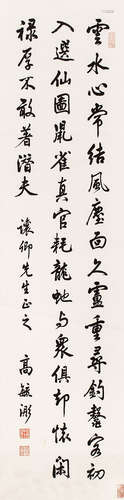 雲水心常結風塵面久盧重尋釣鰲客初
入選仙圖鼠雀真官耗龍虵与衆俱却懷閑
祿厚不敢著潛夫 讓卿先生正之 高毓浵